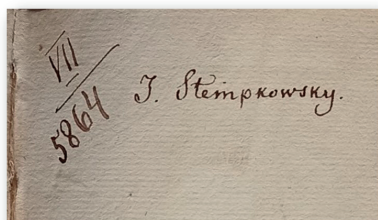 VII
5864
J. Stempkowsky.